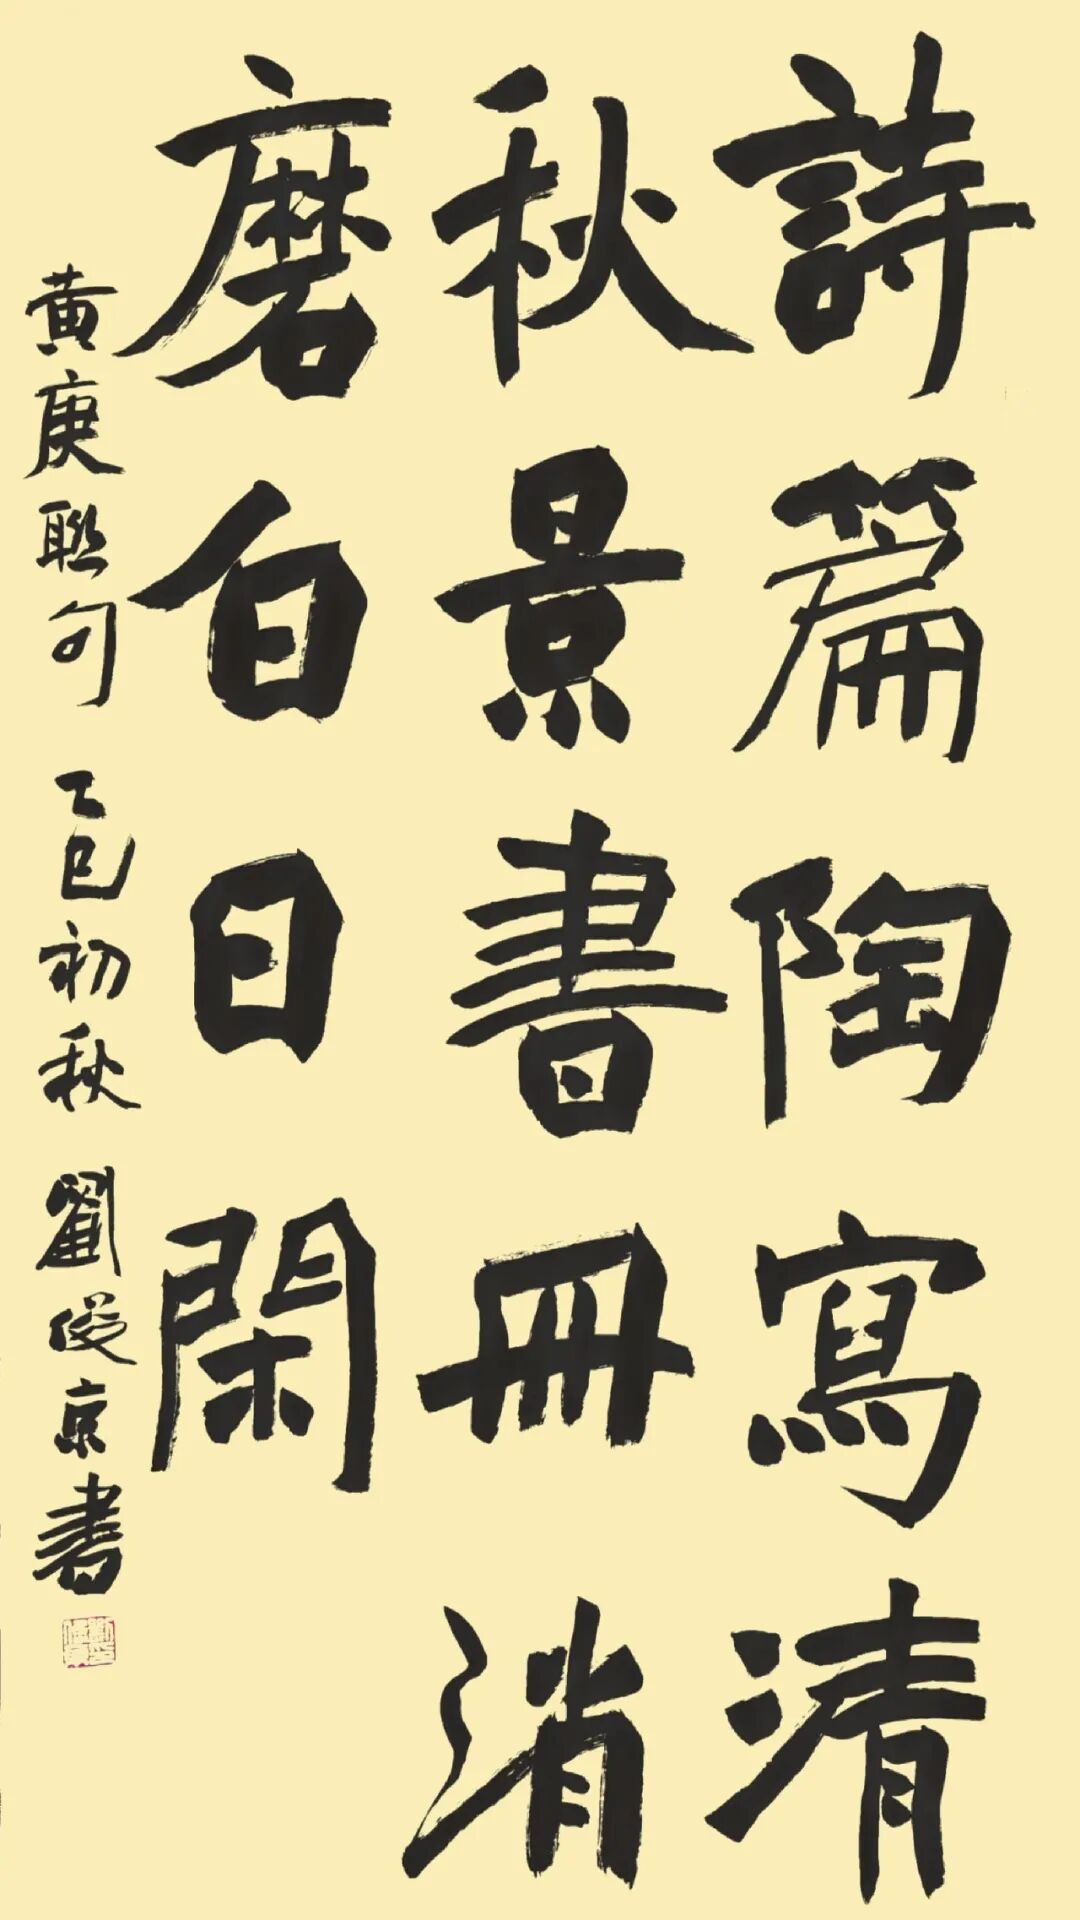 詩篇陶寫清
秋景書冊消
磨白日閑
黃庚聯句 乙巳初秋 劉俊京書